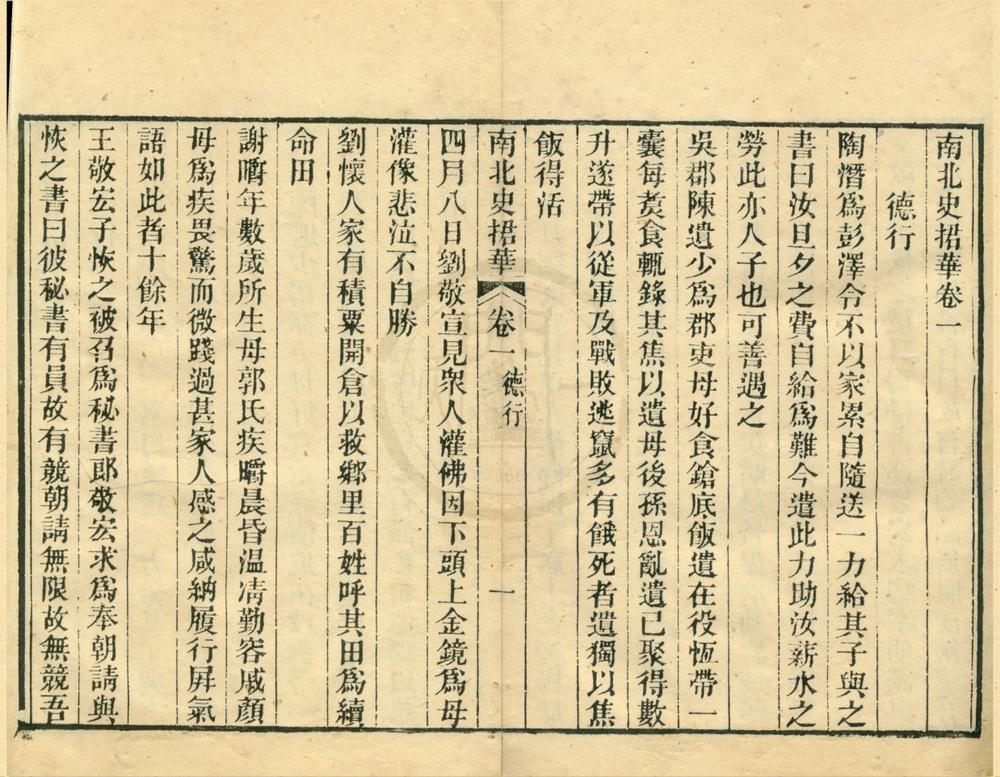 南北史捃華卷一
德行
陶潛爲彭澤令不以家累自隨送一力給其子與之
書曰汝旦夕之費自給爲難今遣此力助汝薪水之
勞此亦人子也可善遇之
吳郡陳遺少爲郡吏母好食鎗底飯遺在役恆帶一
囊每煑食輒錄其焦以遺母後孫恩亂遺已聚得數
升遂帶以從軍及戰敗逃竄多有餓死者遺獨以焦
飯得活
南北史捃華 卷一 德行 一
四月八日劉敬宣見衆人灌佛因下頭上金鏡爲母
灌像悲泣不自勝
劉懷人家有積粟開倉以救鄉里百姓呼其田爲續
命田
謝𤅢年數歲所生母郭氏疾𤅢晨昏温凊勤容戚顏
母爲疾畏驚而微踐過甚家人感之咸納履行屏氣
語如此者十餘年
王敬宏子恢之被召爲秘書郎敬宏求爲奉朝請與
恢之書曰彼秘書有員故有競朝請無限故無競吾